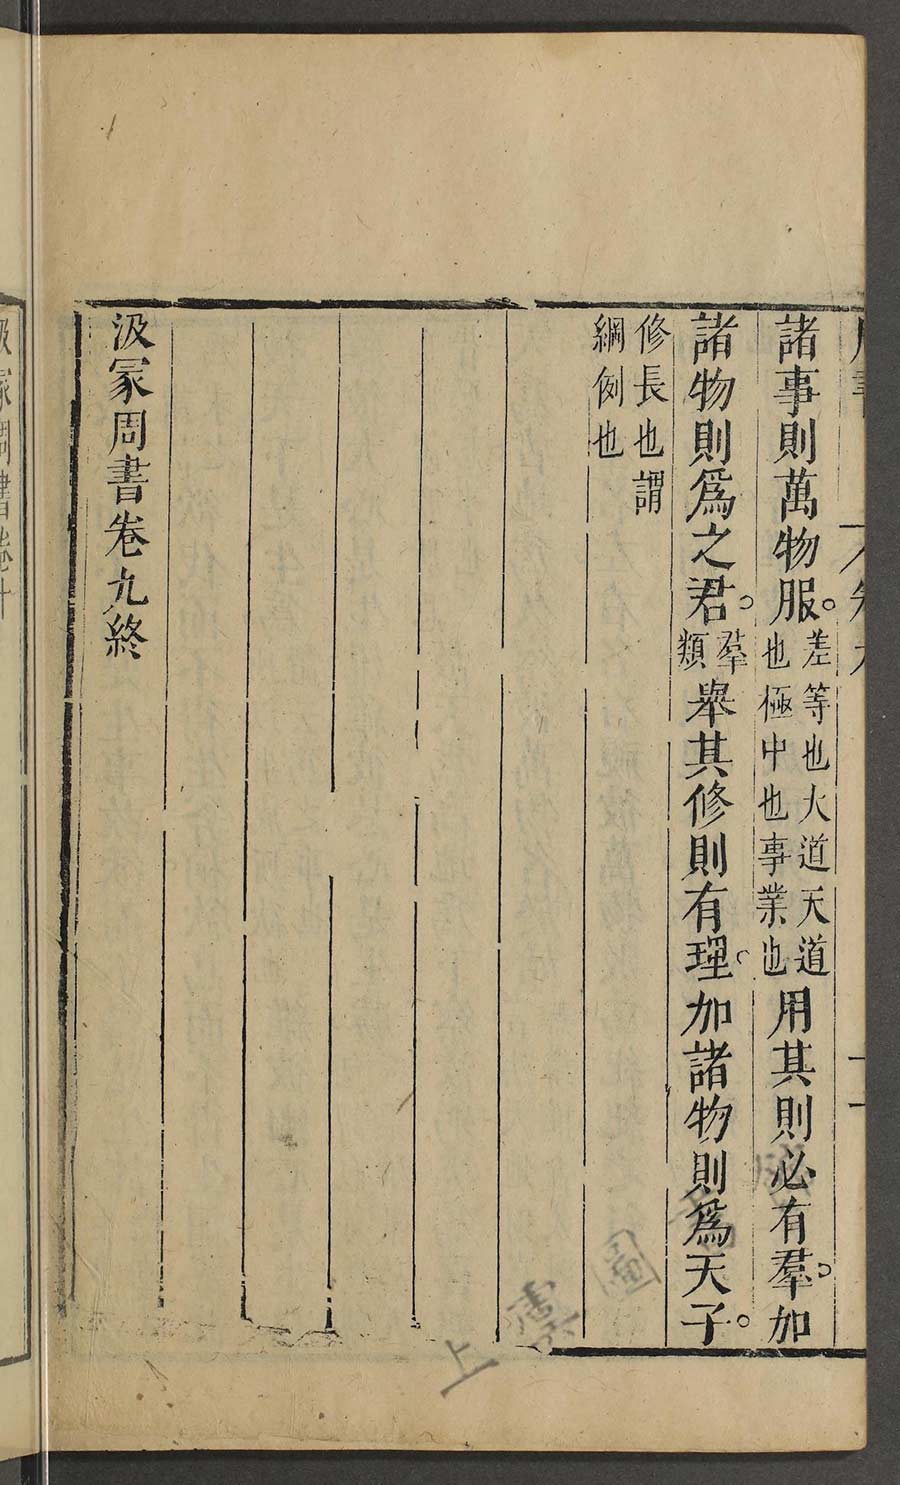 諸事則萬物服。差等也大道天道也極中也事業也用其則必有羣。加
諸物則爲之君。羣類舉其修則有理。加諸物則爲天子。
修長也謂
綱例也
汲冢周書卷九終